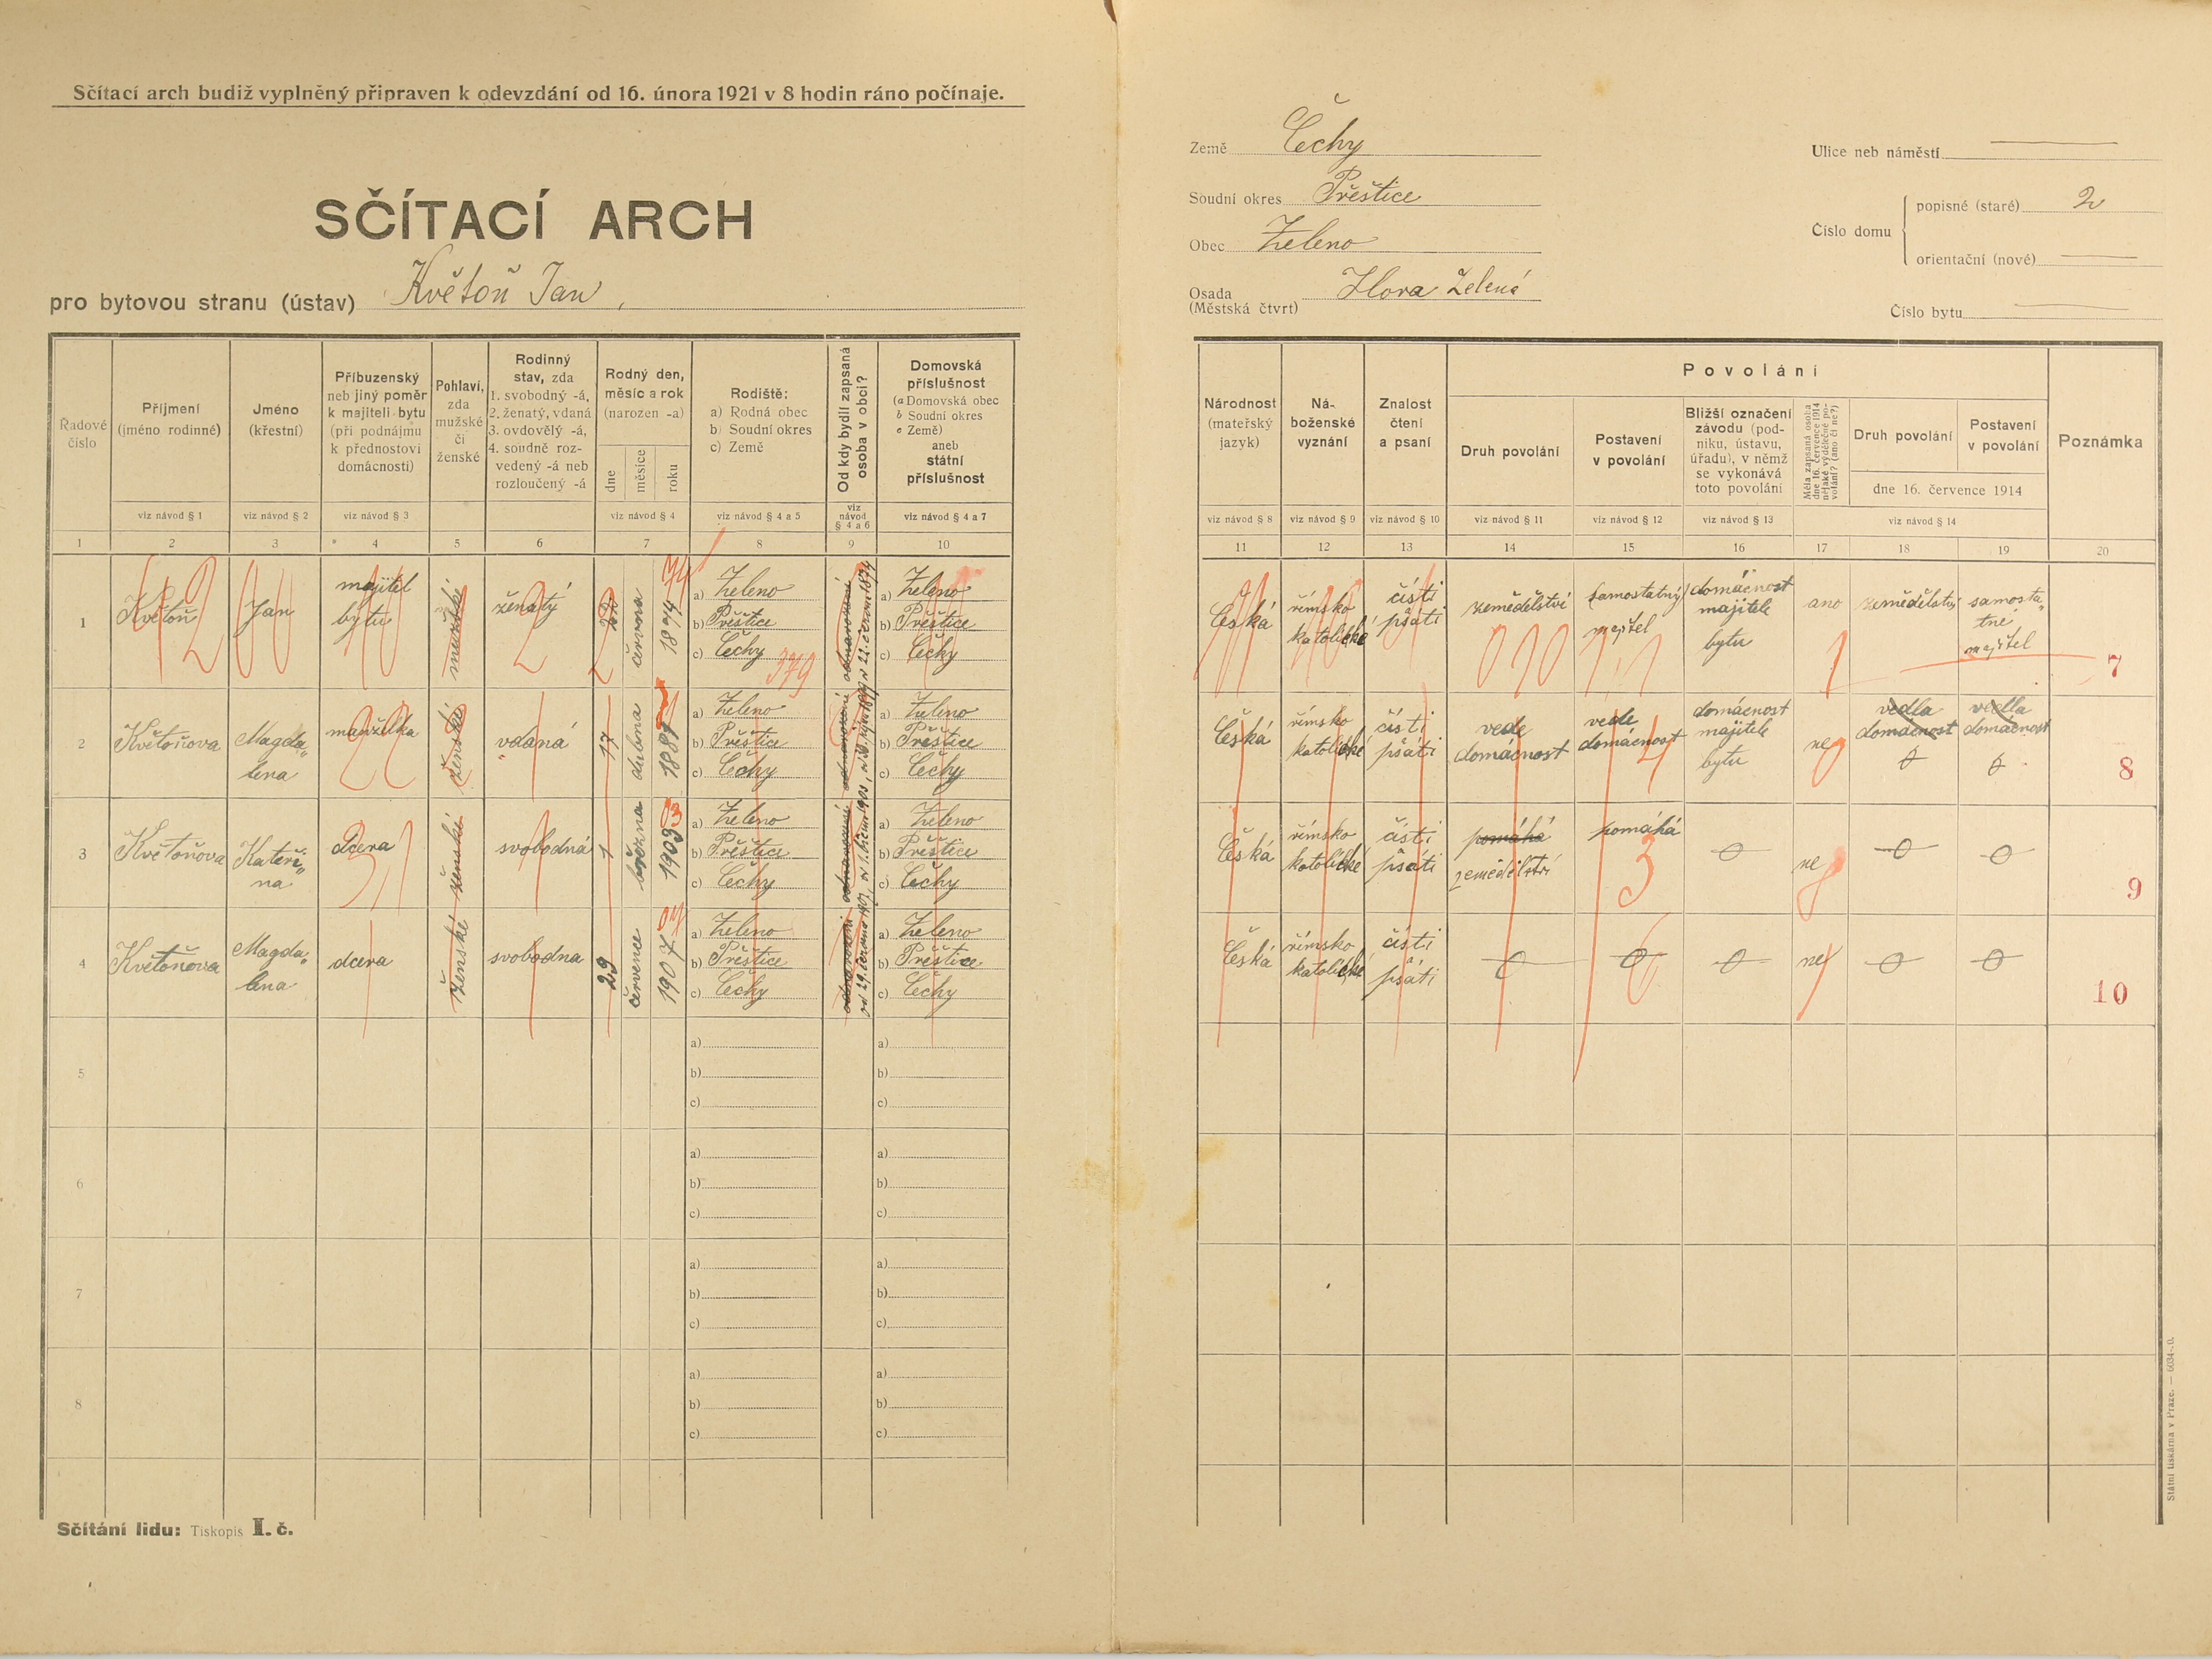 Sčítací arch budiž vyplněný připraven k odevzdání od 16. února 1921 v 8 hodin ráno počínaje.
SČÍTACÍ ARCH
pro bytovou stranu (ústav) Květoň Jan
Země Čechy
Soudní okres Přeštice
Obec Zeleno
Osada Hora Zelená
(Městská čtvrt)
Ulice neb náměstí
Číslo domu
popisné (staré) 2
orientační (nové)
Číslo bytu
Řadové číslo
Příjmení (jméno rodinné)
Jméno (křestní)
Příbuzenský neb jiný poměr k majiteli bytu (při podnájmu k přednostovi domácnosti)
Pohlaví, zda mužské či ženské
Rodinný stav, zda 1. svobodný -á, 2. ženatý, vdaná 3. ovdovělý -á, 4. soudně rozvedený -á neb rozloučený -á
Rodný den, měsíc a rok (narozen -a)
dne měsíce roku
Rodiště: a) Rodná obec b) Soudní okres c) Země
Od kdy bydlí zapsaná osoba v obci?
Domovská příslušnost (a Domovská obec b Soudní okres c Země) aneb státní příslušnost
viz návod § 1 viz návod § 2 viz návod § 3 viz návod § 4 viz návod § 4 a 5 viz návod § 4 a 6 viz návod § 4 a 7
1 2 3 4 5 6 7 8 9 10
Národnost (mateřský jazyk)
Náboženské vyznání
Znalost čtení a psaní
Povolání
Druh povolání
Postavení v povolání
Bližší označení závodu (podniku, ústavu, úřadu), v němž se vykonává toto povolání
Měla zapsaná osoba dne 16. července 1914 nějaké výdělečné povolání? (ano či ne?)
Druh povolání
Postavení v povolání
dne 16. července 1914
Poznámka
viz návod § 8 viz návod § 9 viz návod § 10 viz návod § 11 viz návod § 12 viz návod § 13 viz návod § 14
11 12 13 14 15 16 17 18 19 20
1 Květoň Jan majitel bytu mužské ženatý 22 června 1874
a) Zeleno b) Přeštice c) Čechy
od 22. června 1874
a) Zeleno b) Přeštice c) Čechy
Česká římsko katolické čísti psáti zemědělství samostatný majitel domácnost majitele bytu ano zemědělství samostatné majitel 7
2 Květoňova Magdalena manželka ženské vdaná 17 dubna
a) Zeleno b) Přeštice c) Čechy
a) Zeleno b) Přeštice c) Čechy
Česká římsko katolické čísti psáti vede domácnost vede domácnost domácnost majitele bytu ne vedla domácnost vedla domácnost 8
3 Květoňova Kateřina dcera ženské svobodná 1 března 1903
a) Zeleno b) Přeštice c) Čechy
a) Zeleno b) Přeštice c) Čechy
Česká římsko katolické čísti psáti pomáhá zemědělství pomáhá ne 9
4 Květoňova Magdalena dcera ženské svobodna 29 července 1907
a) Zeleno b) Přeštice c) Čechy
a) Zeleno b) Přeštice c) Čechy
Česká římsko katolické čísti psáti ne 10
5 a) b) c) a) b) c)
6 a) b) c) a) b) c)
7 a) b) c) a) b) c)
8 a) b) c) a) b) c)
Sčítání lidu: Tiskopis I. č.